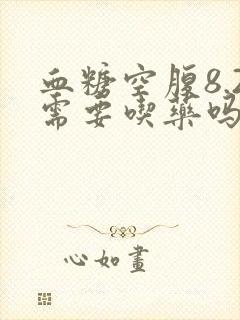 血糖空腹8.
需要喫藥吗
心如畫